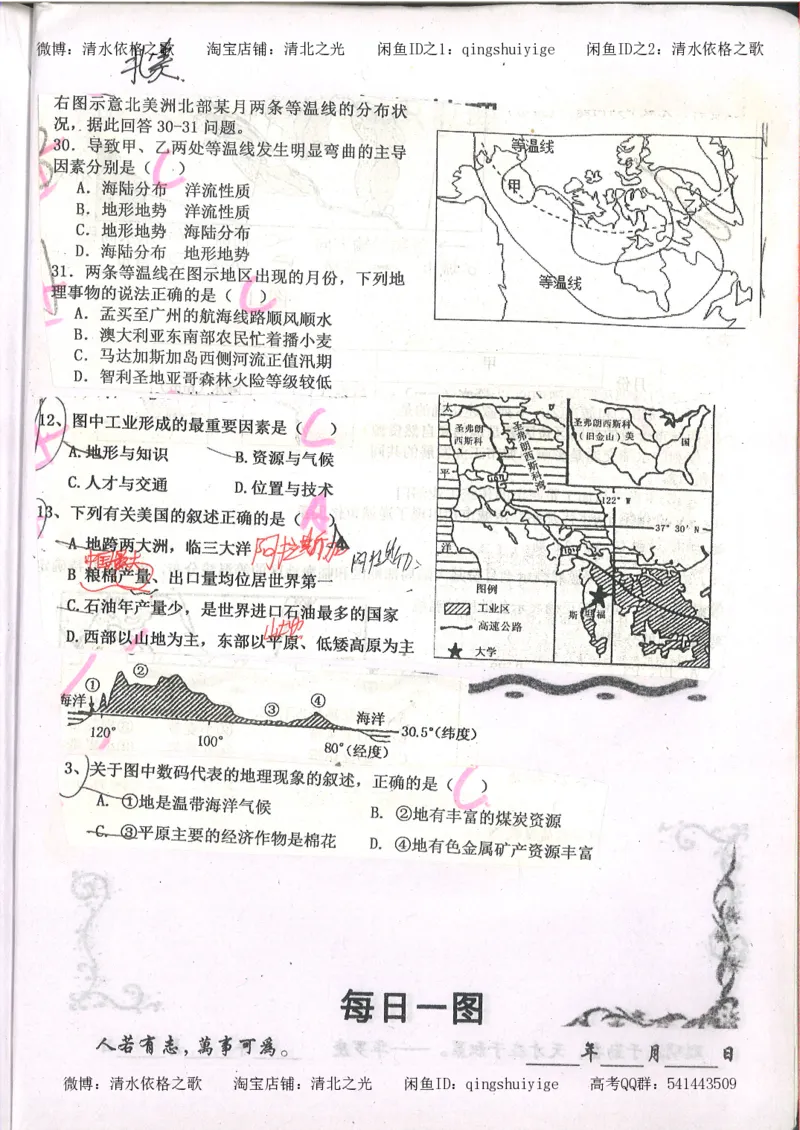 微博：清水依格之歌 淘宝店铺：清北之光 闲鱼ID之1：qingshuiyige 闲鱼ID之2：清水依格之歌
北美
右图示意北美洲北部某月两条等温线的分布状
况，据此回答 30-31 问题。
30．导致甲、乙两处等温线发生明显弯曲的主导
因素分别是（ C ）
A．海陆分布 洋流性质
B．地形地势 洋流性质
C．地形地势 海陆分布
D．海陆分布 地形地势
31．两条等温线在图示地区出现的月份，下列地
理事物的说法正确的是（ C ）
A．孟买至广州的航海线路顺风顺水
B．澳大利亚东南部农民忙着播小麦
C．马达加斯加岛西侧河流正值汛期
D．智利圣地亚哥森林火险等级较低
等温线
甲
乙
等温线
12、图中工业形成的最重要因素是（ C ）
A.地形与知识 B.资源与气候
C.人才与交通 D.位置与技术
13、下列有关美国的叙述正确的是（ A ）
A 地跨两大洲，临三大洋 阿拉斯加 阿拉斯加
中国最大
B 粮棉产量、出口量均位居世界第一
C.石油年产量少，是世界进口石油最多的国家
山地
D.西部以山地为主，东部以平原、低矮高原为主
太
平
洋
圣弗朗
西斯科
圣弗朗西斯科湾
圣弗朗西斯科
（旧金山）美
国
122° W
37° 30′ N
斯坦福
图例
工业区
高速公路
大学
海洋
①
②
③
④
海洋
30.5°(纬度)
120°
100°
80°(经度)
3、关于图中数码代表的地理现象的叙述，正确的是（ C ）
A. ①地是温带海洋气候 B. ②地有丰富的煤炭资源
C. ③平原主要的经济作物是棉花 D. ④地有色金属矿产资源丰富
每日一图
人若有志，萬事可為。
年 月 日
微博：清水依格之歌 淘宝店铺：清北之光 闲鱼ID：qingshuiyige 高考QQ群：541443509